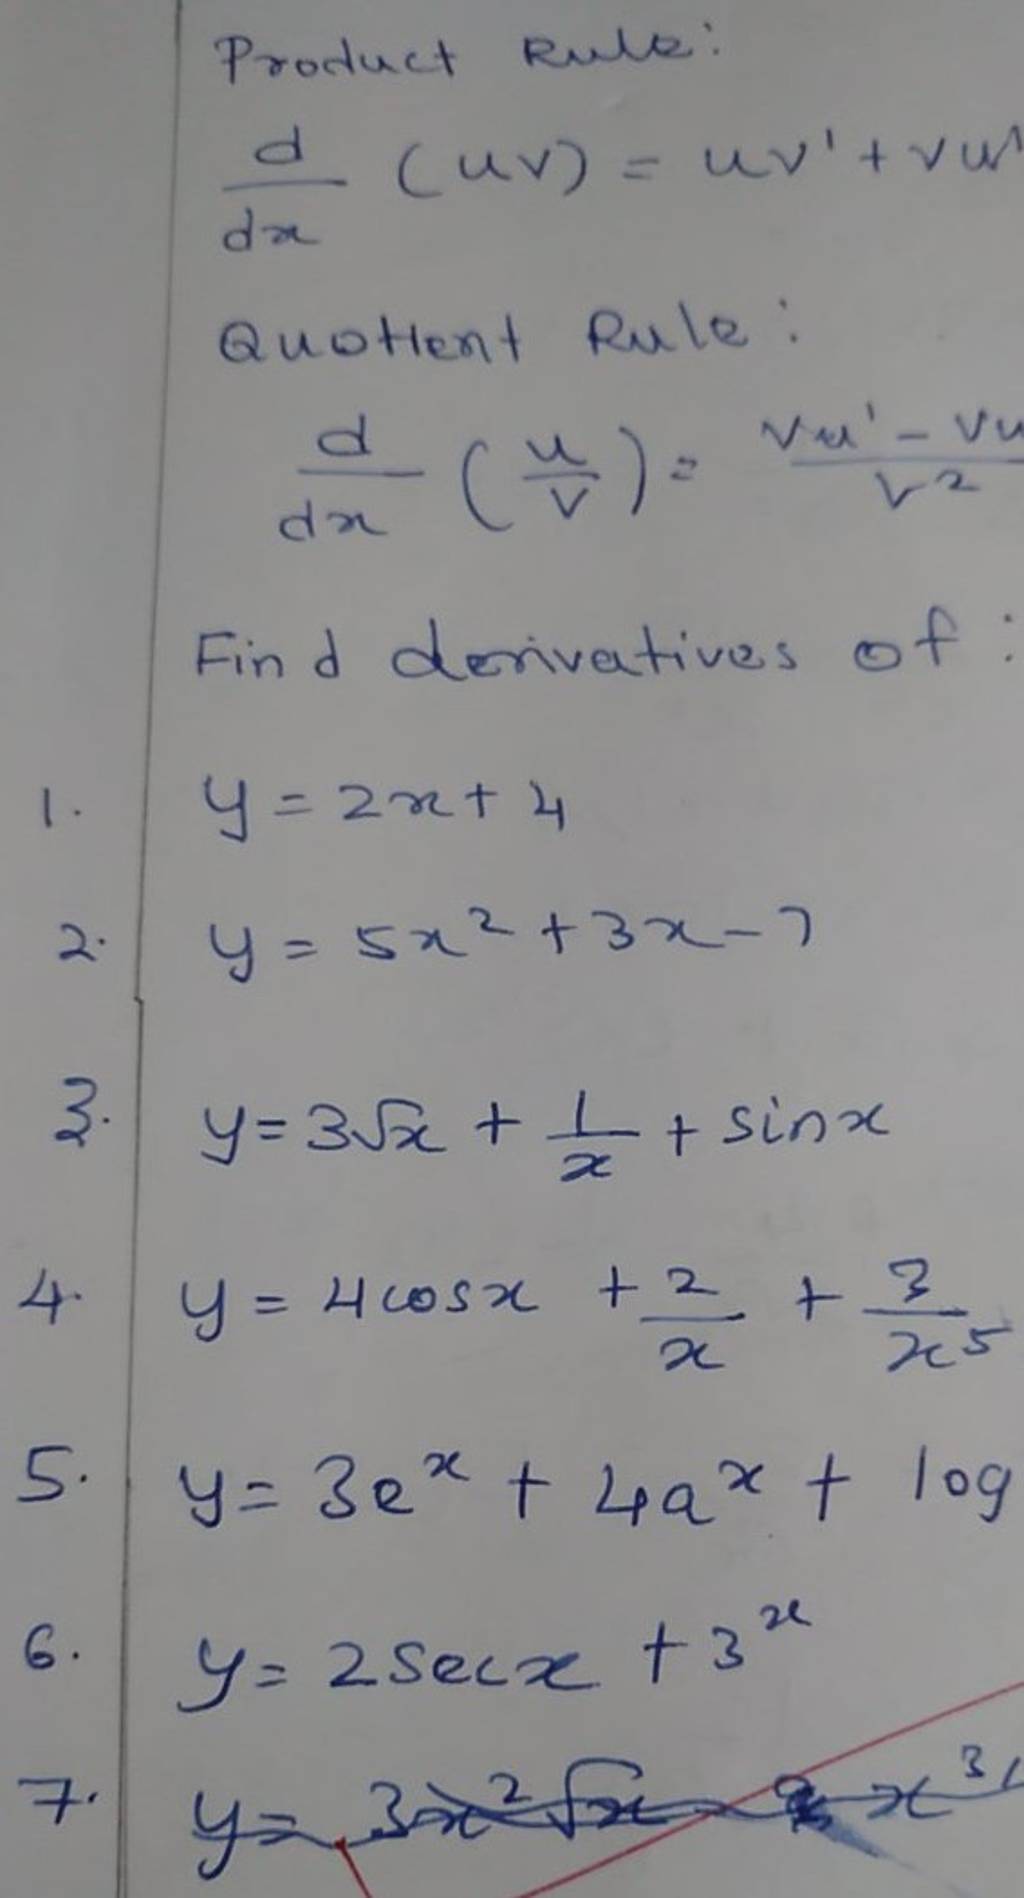 Product Rule:
d/dx (uv) = uv' + vu'
Quotient Rule:
d/dx (u/v) = vu' - vu / v²
Find derivatives of:
1. y = 2x + 4
2. y = 5x² + 3x - 7
3. y = 3√x + 1/x + sinx
4. y = 4cosx + 2/x + 3/x⁵
5. y = 3eˣ + 4aˣ + log
6. y = 2secx + 3ˣ
7. y = 3x²√x